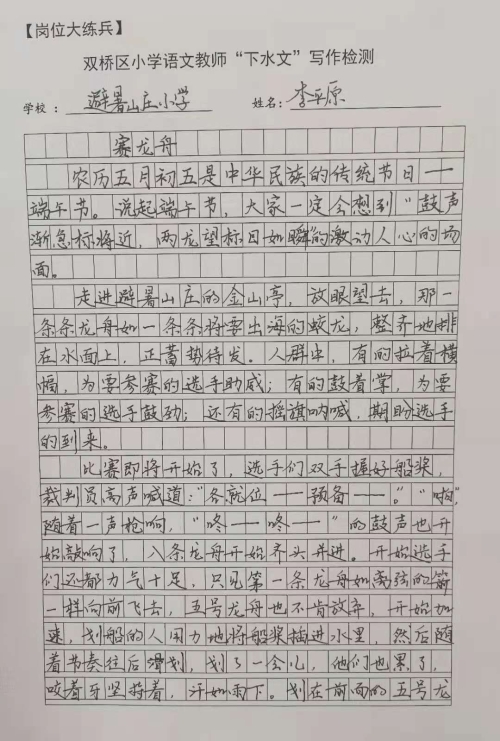 【岗位大练兵】
双桥区小学语文教师“下水文”写作检测
学校：避暑山庄小学 姓名：李平原
赛龙舟
农历五月初五是中华民族的传统节日——
端午节。说起端午节，大家一定会想到“鼓声
渐急标将近，两龙望标目如瞬”的激动人心的场
面。
走进避暑山庄的金山亭，放眼望去，那一
条条龙舟如一条条将要出海的蛟龙，整齐地排
在水面上，正蓄势待发。人群中，有的拉着横
幅，为要参赛的选手助威；有的鼓着掌，为要
参赛的选手鼓劲；还有的摇旗呐喊，期盼选手
的到来。
比赛即将开始了，选手们双手握好船桨，
裁判员高声喊道：“各就位——预备——。”“啪”
随着一声枪响，“咚——咚——”的鼓声也开
始敲响了，八条龙舟开始齐头并进。开始选手
们还都力气十足，只见第一条龙舟如离弦的箭
一样向前飞去，五号龙舟也不肯放弃，开始加
速，划船的人用力地将船桨插进水里，然后随
着节奏往后滑划，划了一会儿，他们也累了，
咬着牙坚持着，汗如雨下。划在前面的五号龙